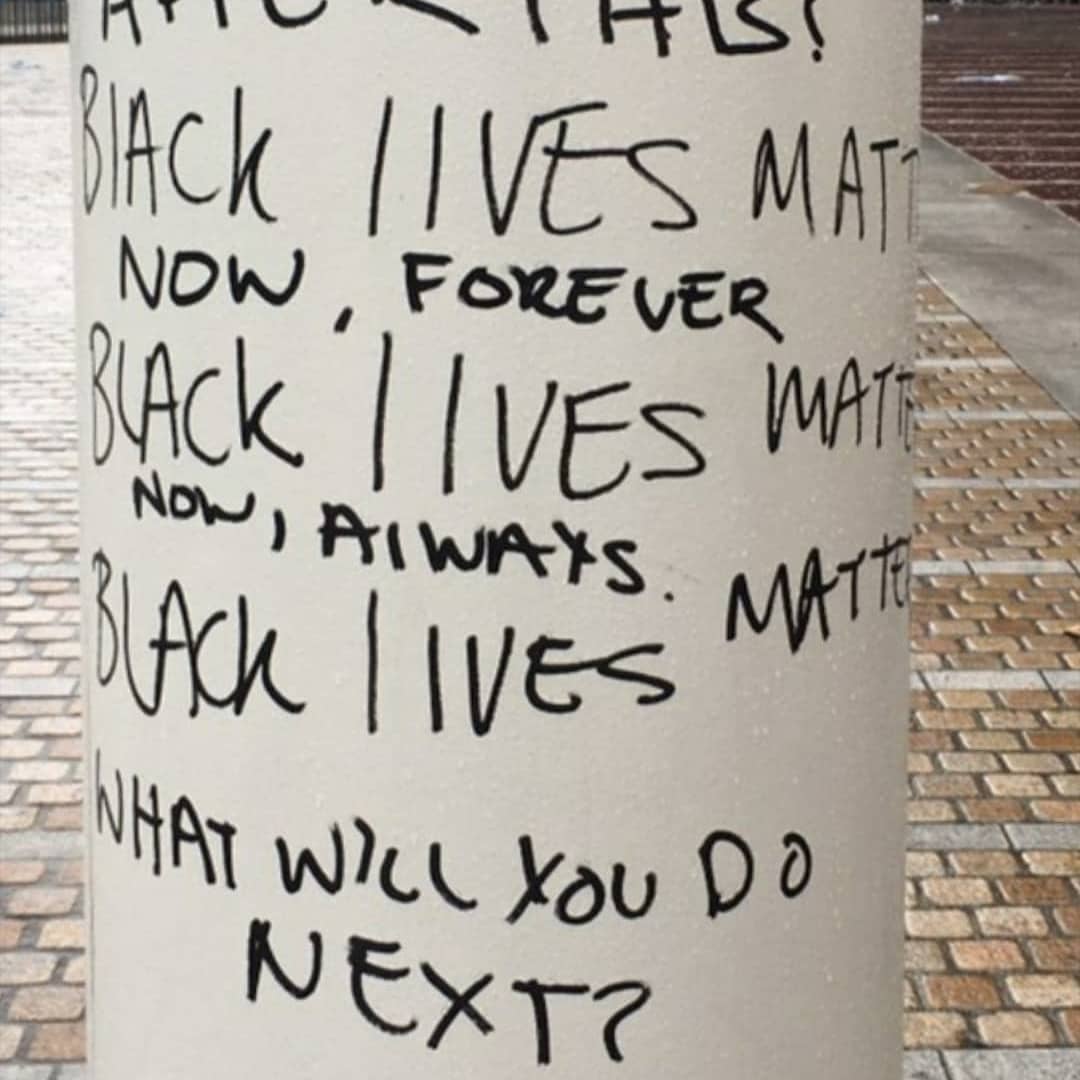 THIS?
BlACk lIVES MATT
NOW, FOREVER
BLACk lIVES MATTE
NOW, AlWAYS.
BLACk lIVES MATTE
WHAT WILL YOU DO
NEXT?